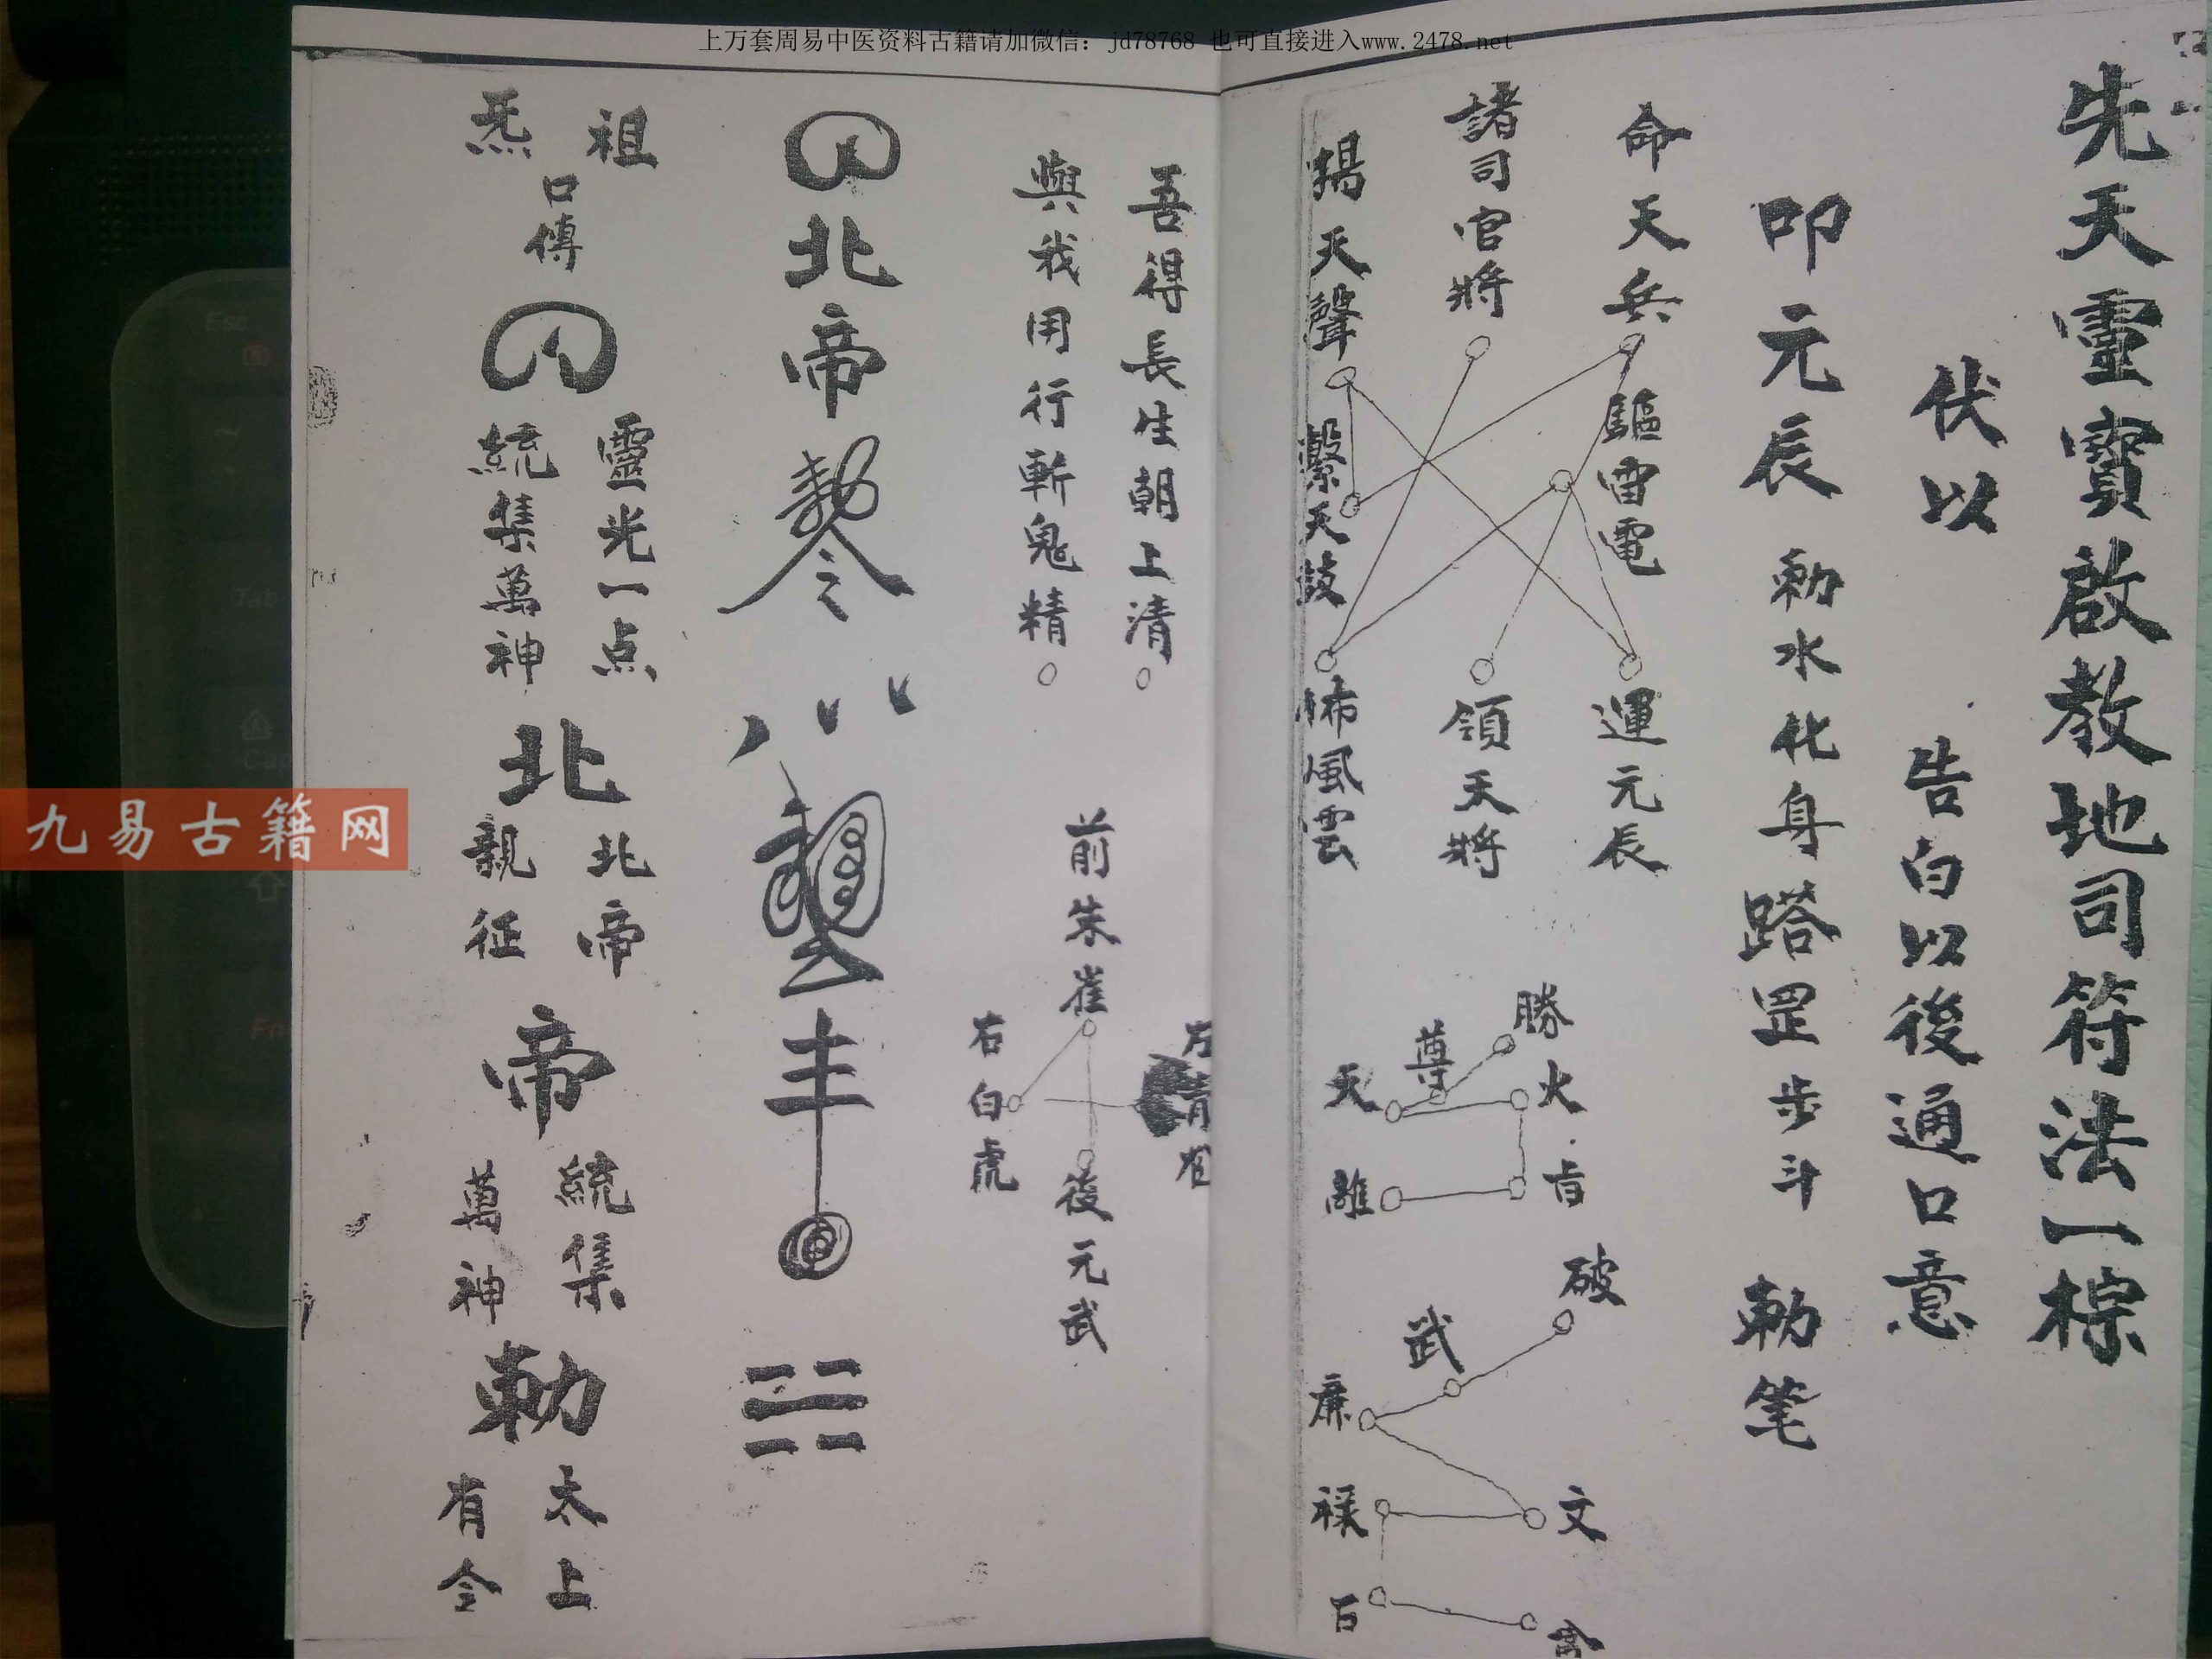 上万套周易中医资料古籍请加微信：jd78768 也可直接进入www.2478.net
先天靈寳啟教地司符法一棕
伏以 告白以後通口意
叩元辰 勅水化身 踏罡步斗 勅笔
命天兵 驅雷電 運元辰
諸司官將 領天將
揚天聲 擊天鼓 佈風雲
勝
尊
天 火
離
破
武
廉
文
禄
吾得長生朝上清
與我用行斬鬼精
前朱雀
左青
右白虎
後元武
北帝
祖炁
口傳
靈光一点
統集萬神
北
北帝
親征
帝
統集
萬神
勅
太上
有令
九易古籍网